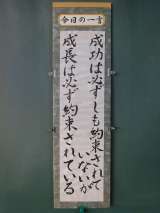 今日の一言
成功は必ずしも約束されて
いないが
成長は必ず約束されている